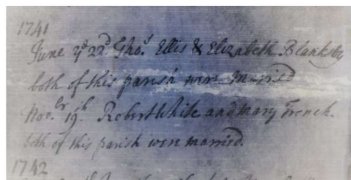 1741
June ye 22d Thos Ellis & Elizabeth Blanks
both of this parish were married
Novbr 19th Robert White and Mary French.
both of this parish were married.
1742